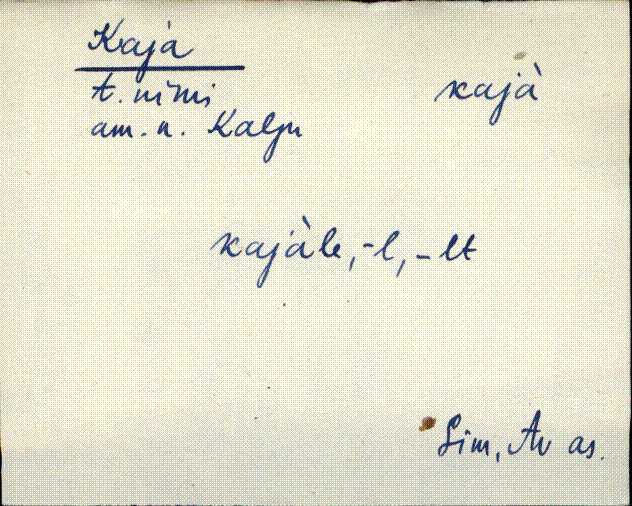 Kaja
t. nimi
kajà
am. n. Kalju
kajàle, -l, -lt
Sim, Av as.